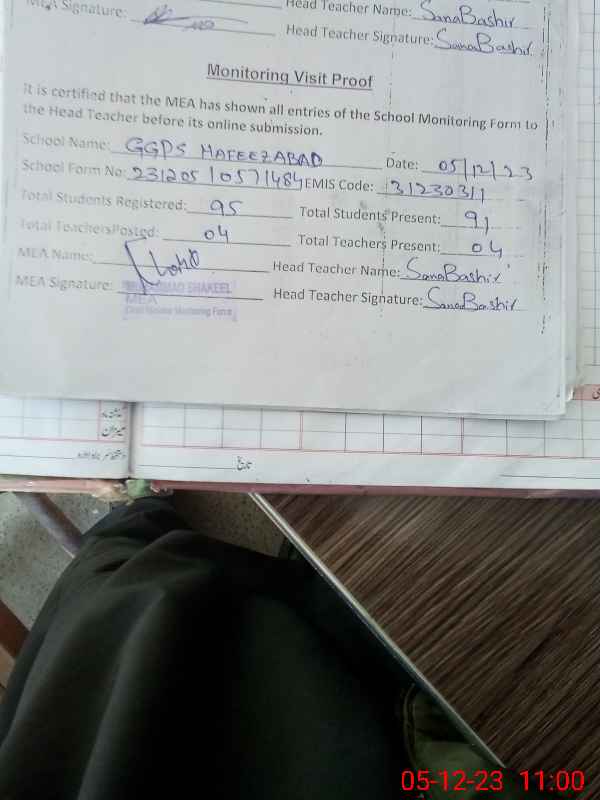 MEA Signature: Head Teacher Name: SanaBashir
Head Teacher Signature: SanaBashir
Monitoring Visit Proof
It is certified that the MEA has shown all entries of the School Monitoring Form to
the Head Teacher before its online submission.
School Name: GGPS HAFEEZABAD Date: 05/12/23
School Form No: 231205/0571484 EMIS Code: 31230311
Total Students Registered: 95 Total Students Present: 91
Total TeachersPosted: 04 Total Teachers Present: 04
MEA Name: Head Teacher Name: SanaBashir
MEA Signature: SHAKEEL Head Teacher Signature: SanaBashir
MEA
Monitoring Force
میزان
تاریخ
05-12-23 11:00